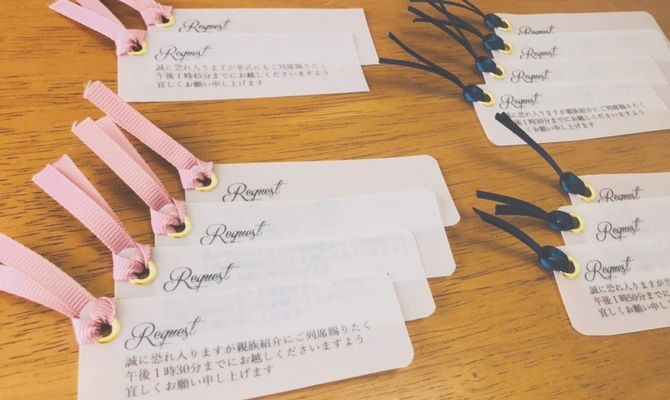 Request
Request
誠に恐れ入りますが挙式にもご列席賜りたく
午後1時45分までにお越しくださいますよう
宜しくお願い申し上げます
Request
Request
Request
Request
誠に恐れ入りますが親族紹介にご列席賜りたく
午後1時30分までにお越しくださいますよう
宜しくお願い申し上げます
Request
Request
Request
Request
誠に恐れ入りますが親族紹介にご列席賜りたく
午後1時30分までにお越しくださいますよう
宜しくお願い申し上げます
Request
Request
Request
誠に恐れ入りますが
午後1時50分までに
宜しくお願い申し上げ